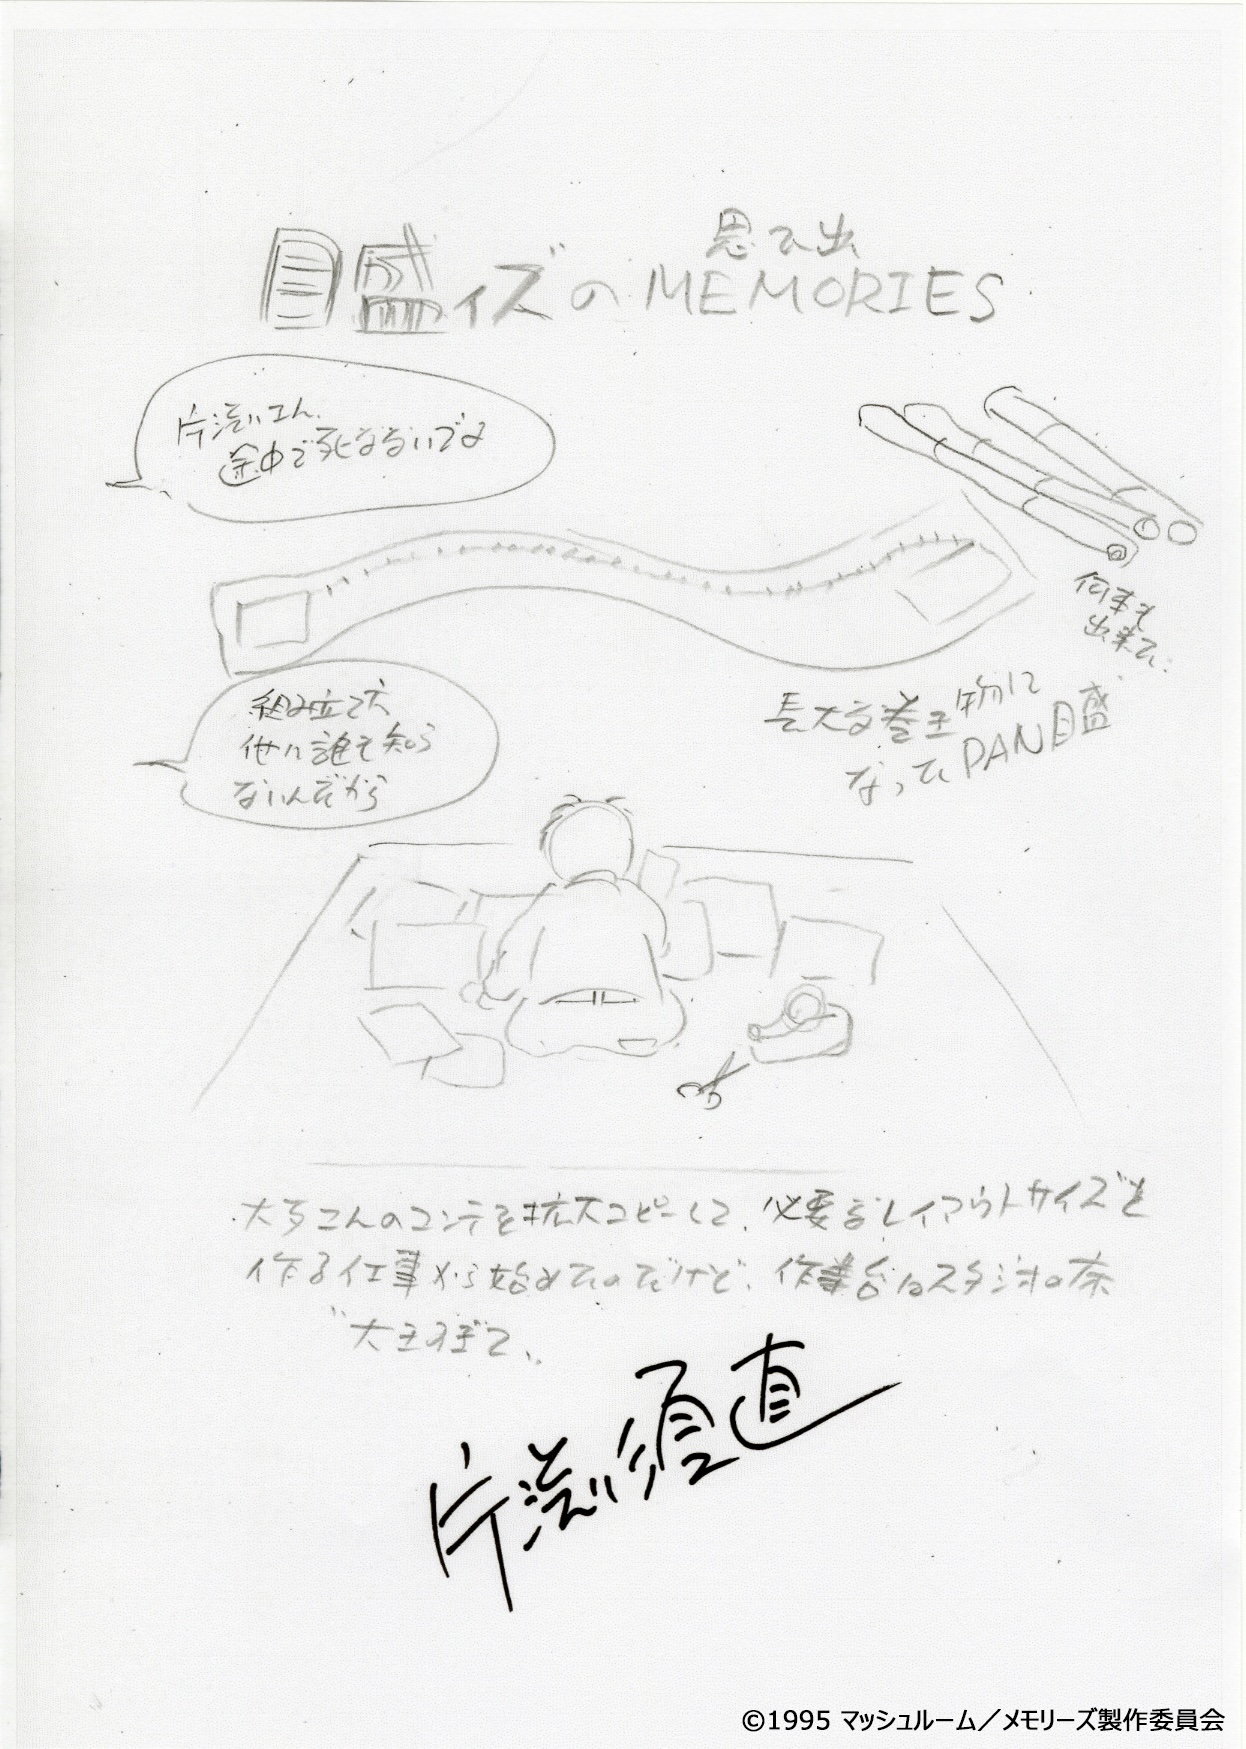 思い出
目盛ィズのMEMORIES
片渕さん、
途中で死なないでよ
何本も
出来た…
長大な巻き物に
なったPAN目盛
組み立て方
他に誰も知ら
ないんだから
大友さんのコンテを拡大コピーして、必要なレイアウトサイズを
作る仕事から始めたのだけど、作業台はスタジオの床
大きすぎて…
片渕須直
©1995 マッシュルーム／メモリーズ製作委員会